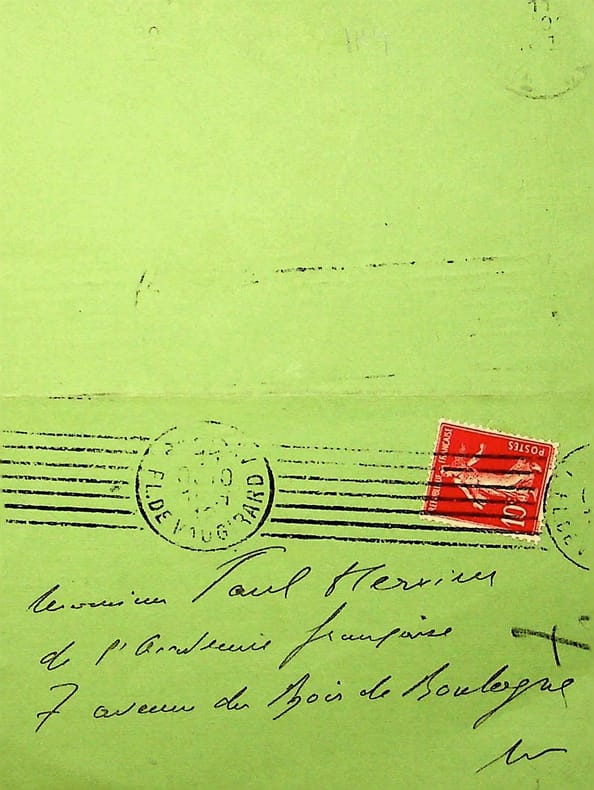 PL. DE VAUGIRARD
REPUBLIQUE FRANÇAISE
POSTES
10
Monsieur Paul Hervieu
de l'Académie française
7 avenue du Bois de Boulogne